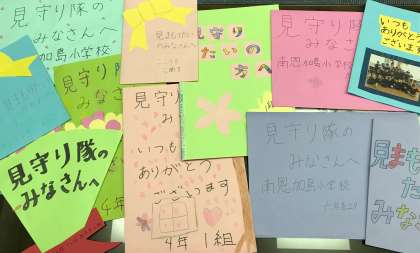 見守り隊の
みなさんへ
加島小学校
見まもりたい
のみなさんへ
見守り
たいの
方へ
見守り隊の
みなさんへ
南恩加島小学校
いつも
ありがとう
ございます
見守り
み
見守り隊の
みなさんへ
見守り
み
いつも
ありがとう
ございます
4年 1組
4年
見守り隊の
みなさんへ
南恩加島小学校
見まも
た
みな